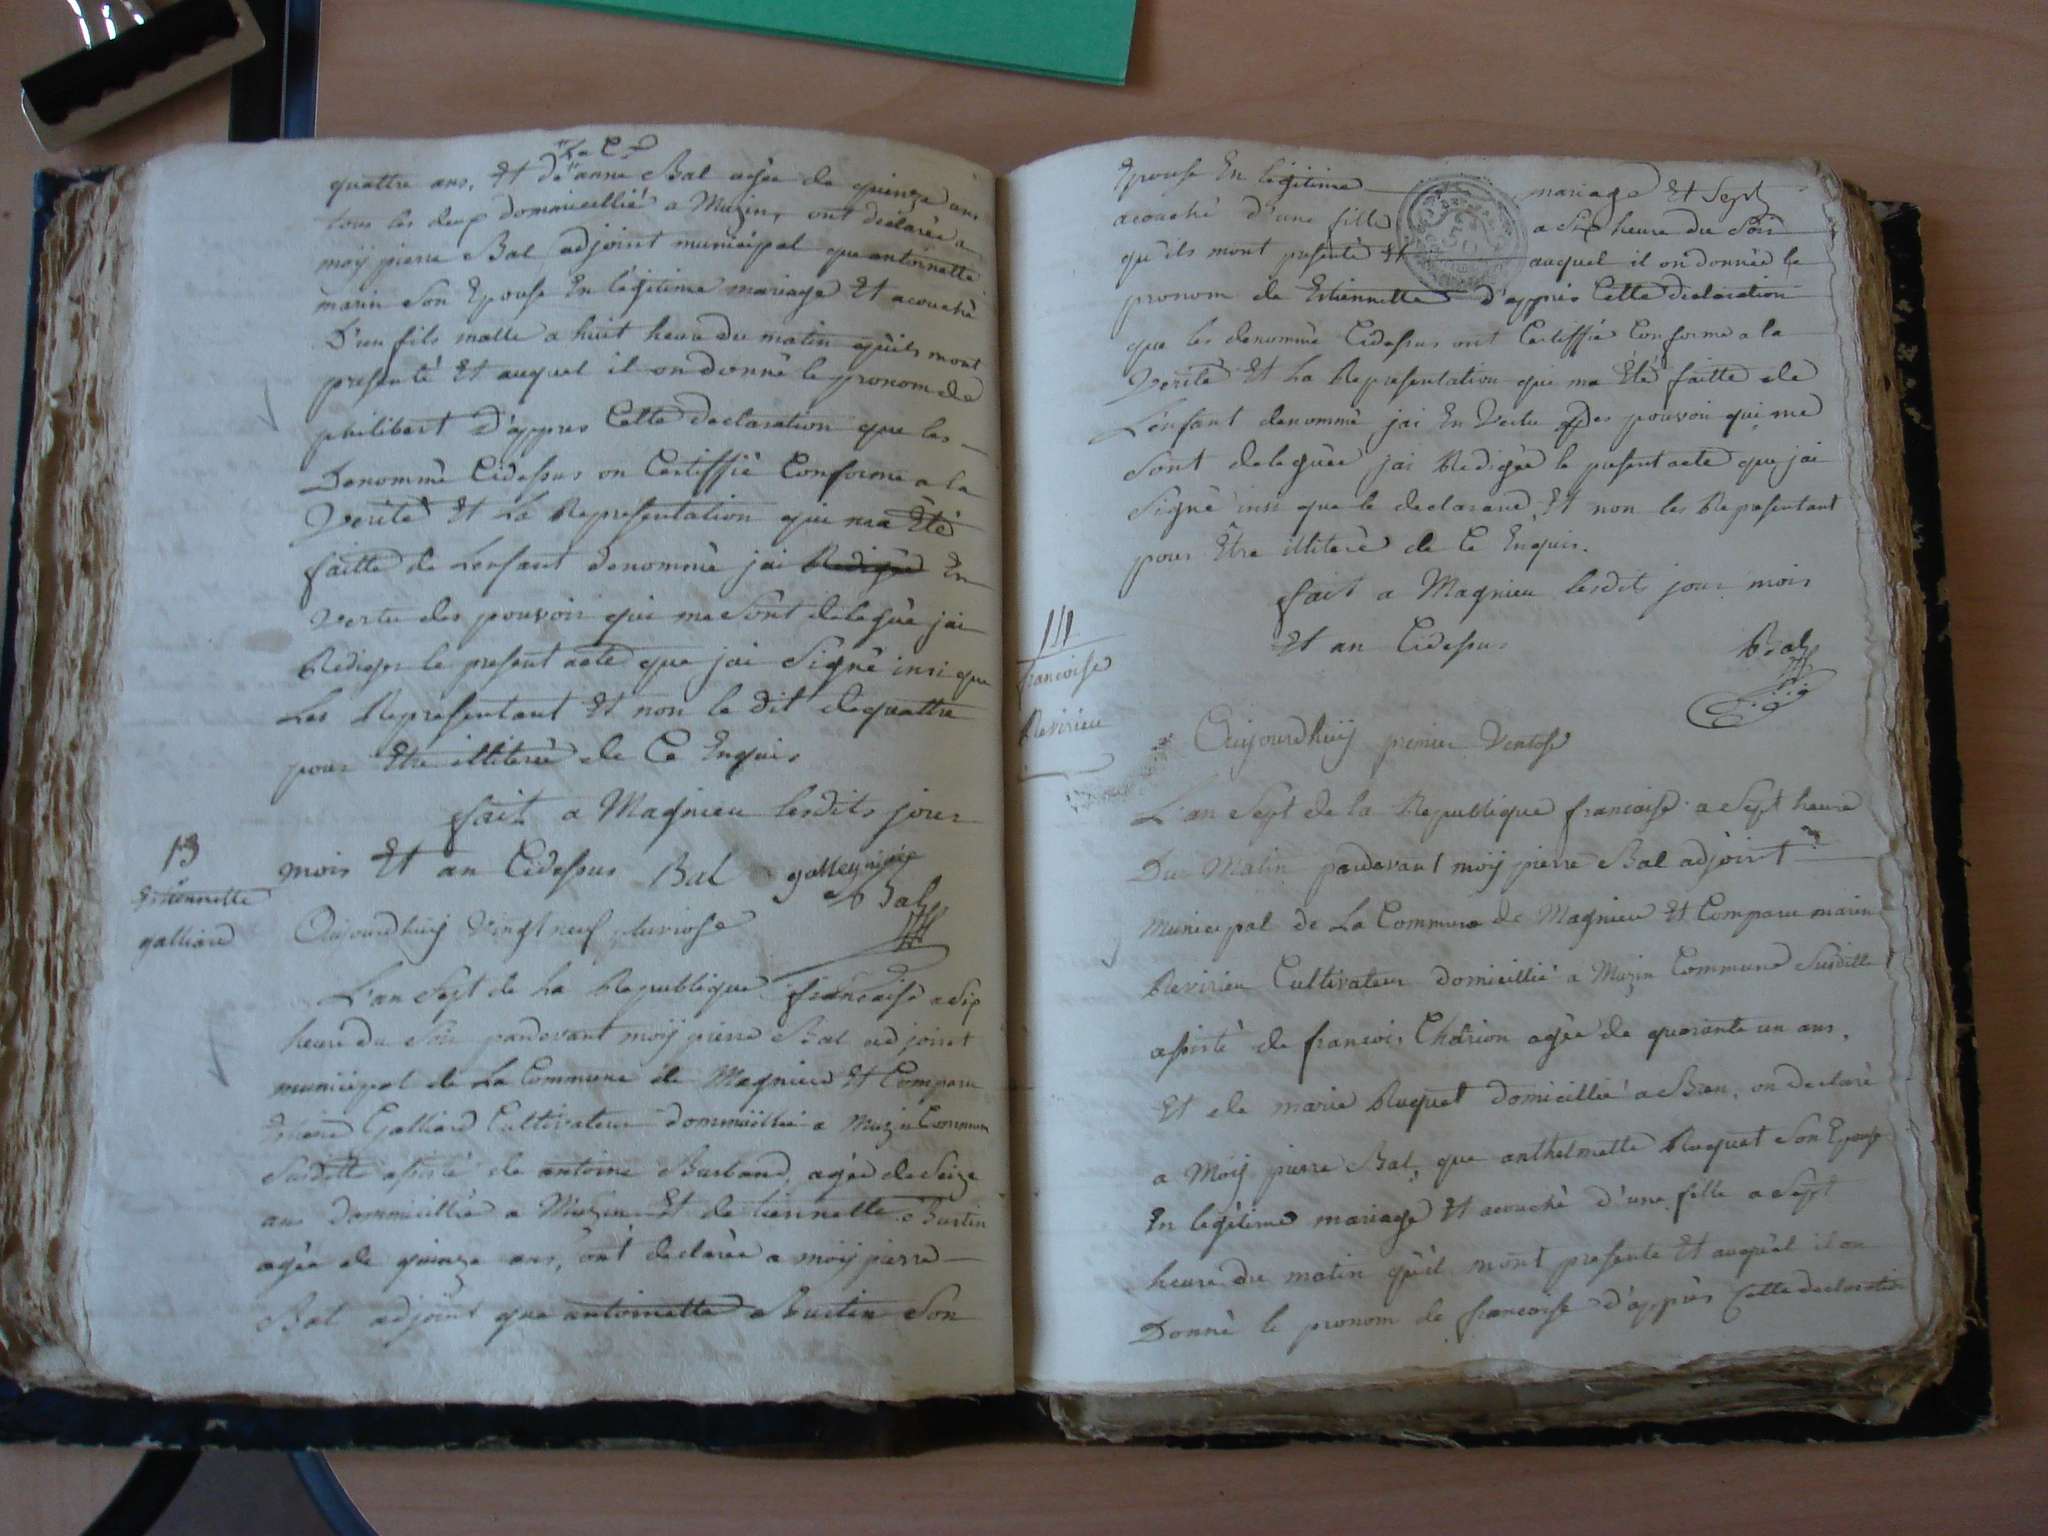 quattre ans, Et de anne Bal agée de quinze ans
tous les deux dommicillié a Muzin, ont declarée a
moÿ pierre Bal adjoint municipal que antoinette
marin Son Epouse En légitime mariage Et acouché
D'un fils malle a huit heure du matin quils mont
presenté Et auquel il on donné le pronom de
philibert D'appres Cette declaration que les
Denommé Cidessus on Certiffié Conforme a la
Verité Et La Representation qui ma Eté
faitte de Lenfant denommé jai Redigée En
Vertu des pouvoir qui me Sont delegué jai
Rédiger le present acte que jai Signé insi que
Les Representant Et non le dit dequattre
pour Etre illiterée de Ce Enquis
fait a Magnieu lesdits jour
mois Et an Cidessus Bal
Bal
13
Estiennette
galliard
Oujourdhuij Vingt neuf pluviose
L'an Sept de La Republique francaise a Six
heure du Soir pardevant moÿ pierre Bal adjoint
municipal de La Commune de Magnieu Et Comparu
Galliard Cultivateur dommicillié a Muzin Commune
Susditte assisté de antoine Burland, agée de Seize
ans dommicillié a Muzin Et de tiennette Burtin
agée de quinze ans, ont declarée a moÿ pierre
Bal adjoint que antoinette Burtin Son
Epouse En légitime mariage Et Sept
acouché d'une fille a Six heure du Soir
qu'ils mont presenté Et auquel il on donnée le
pronom de Estiennette d'appres Cette declaration
que les denommé Cidessus ont Certiffié Conforme a la
Verité Et La Representation qui ma Eté faitte de
L'enfant denommé jai En Vertu Des pouvoir qui me
Sont deleguée jai Redigée le present acte que jai
Signé insi que le declarand, Et non les Representant
pour Être illiteré de Ce Enquis.
fait a Magnieu lesdits jour mois
Et an Cidessus Bal
francoise
Revirieu
Oujourdhuij premier Ventose
L'an Sept de la Republique francaise a Sept heure
Du Matin pardevant moÿ pierre Bal adjoint
Municipal de La Commune de Magnieu Et Comparu marin
Revirieu Cultivateur domicillié a Muzin Commune Susditte
assisté de francois Charion agée de quarante un ans,
Et de marie Ruquet domicillié a Bon, on declaré
a Moÿ pierre Bal, que anthelmette Ruquet Son Epouse
En legitime mariage Et acouché d'une fille a Sept
heure du matin qu'il mont presente Et auquel il on
Donné le pronom de francoise d'appres Cette declaration